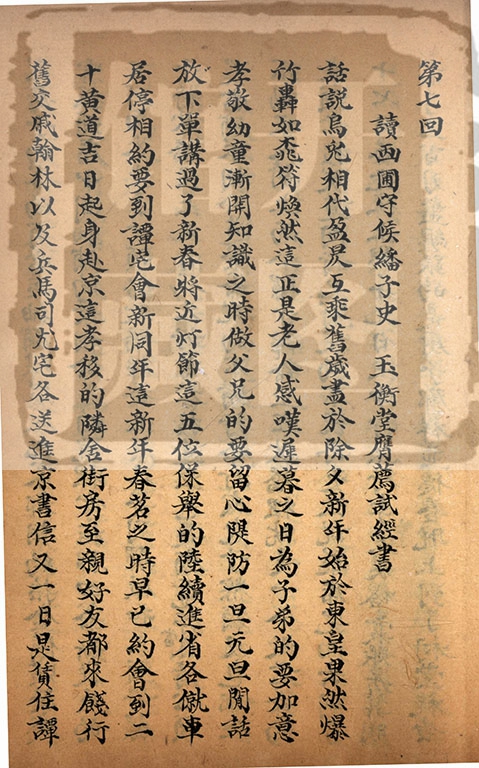 第七回
讀画圃守候繙子史　玉衡堂膺薦試經書
話説烏兎相代盈昃互乘舊歳盡於除夕新年始於東皇果然爆
竹轟如桃符煥然這正是老人感嘆遲暮之日為子弟的要加意
孝敬幼童漸開知識之時做父兄的要留心隄防一旦元旦閒話
放下單講過了新春將近灯節這五位保舉的陸續進省各僦車
居停相約要到譚宅會新同年這新年春茗之時早已約會到二
十黃道吉日起身赴京這孝移的隣舍街房至親好友都來餞行
舊交戚翰林以及兵馬司尤宅各送進京書信又一日是賃住譚